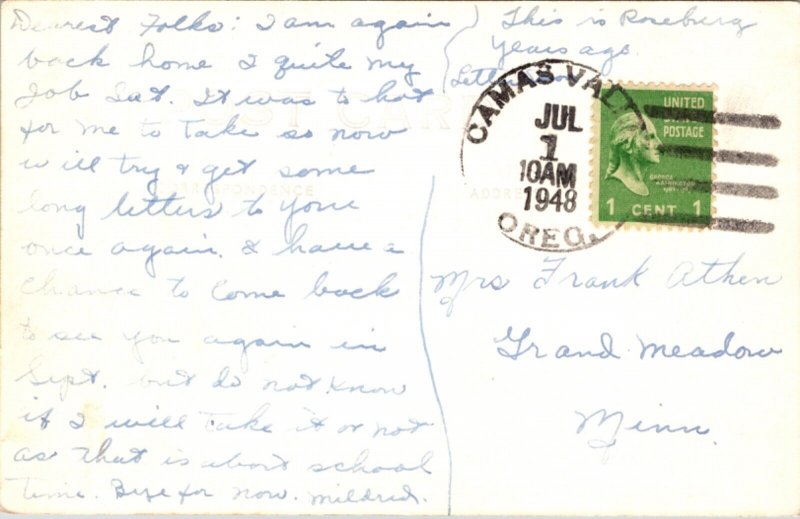 Dearest Folks: I am again
back home I quite my
Job Sat. It was to hot
for me to take so now
will try & get some
long letters to your
once again. I have a
chance to come back
to see you again in
Sept. but do not know
if I will take it or not
as that is about school
time. Bye for now. Mildred.
This is Roseburg
years ago.
Letter
POST CARD
CORRESPONDENCE
ADDRESS
CAMAS VALL
JUL
1
10AM
1948
OREG.
UNITED
STATES
POSTAGE
GEORGE
WASHINGTON
1 CENT 1
Mrs Frank Athen
Grand Meadow
Minn.